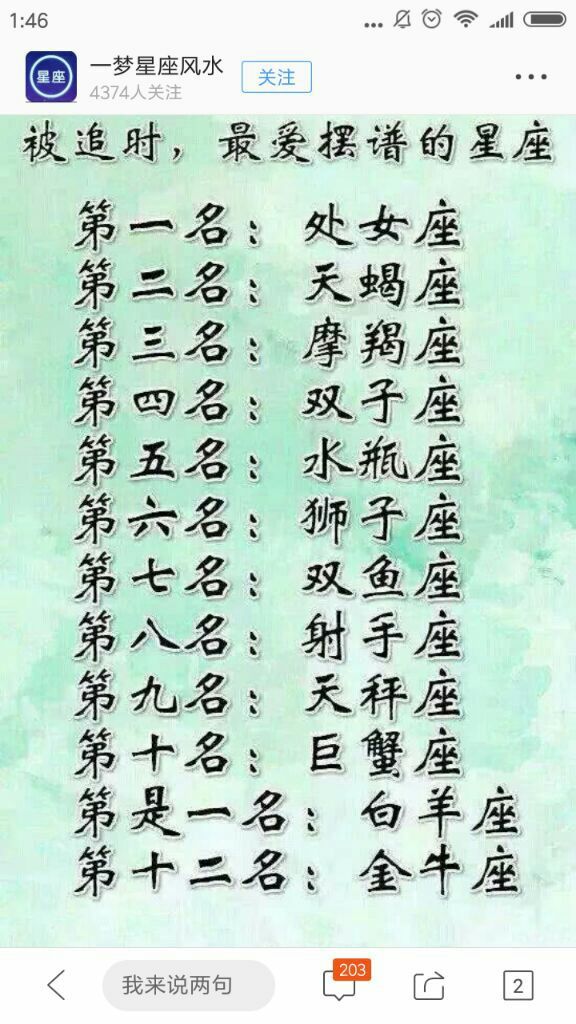 1:46
星座
一梦星座风水
关注
4374人关注
被追时，最爱摆谱的星座
第一名：处女座
第二名：天蝎座
第三名：摩羯座
第四名：双子座
第五名：水瓶座
第六名：狮子座
第七名：双鱼座
第八名：射手座
第九名：天秤座
第十名：巨蟹座
第是一名：白羊座
第十二名：金牛座
我来说两句
203
2